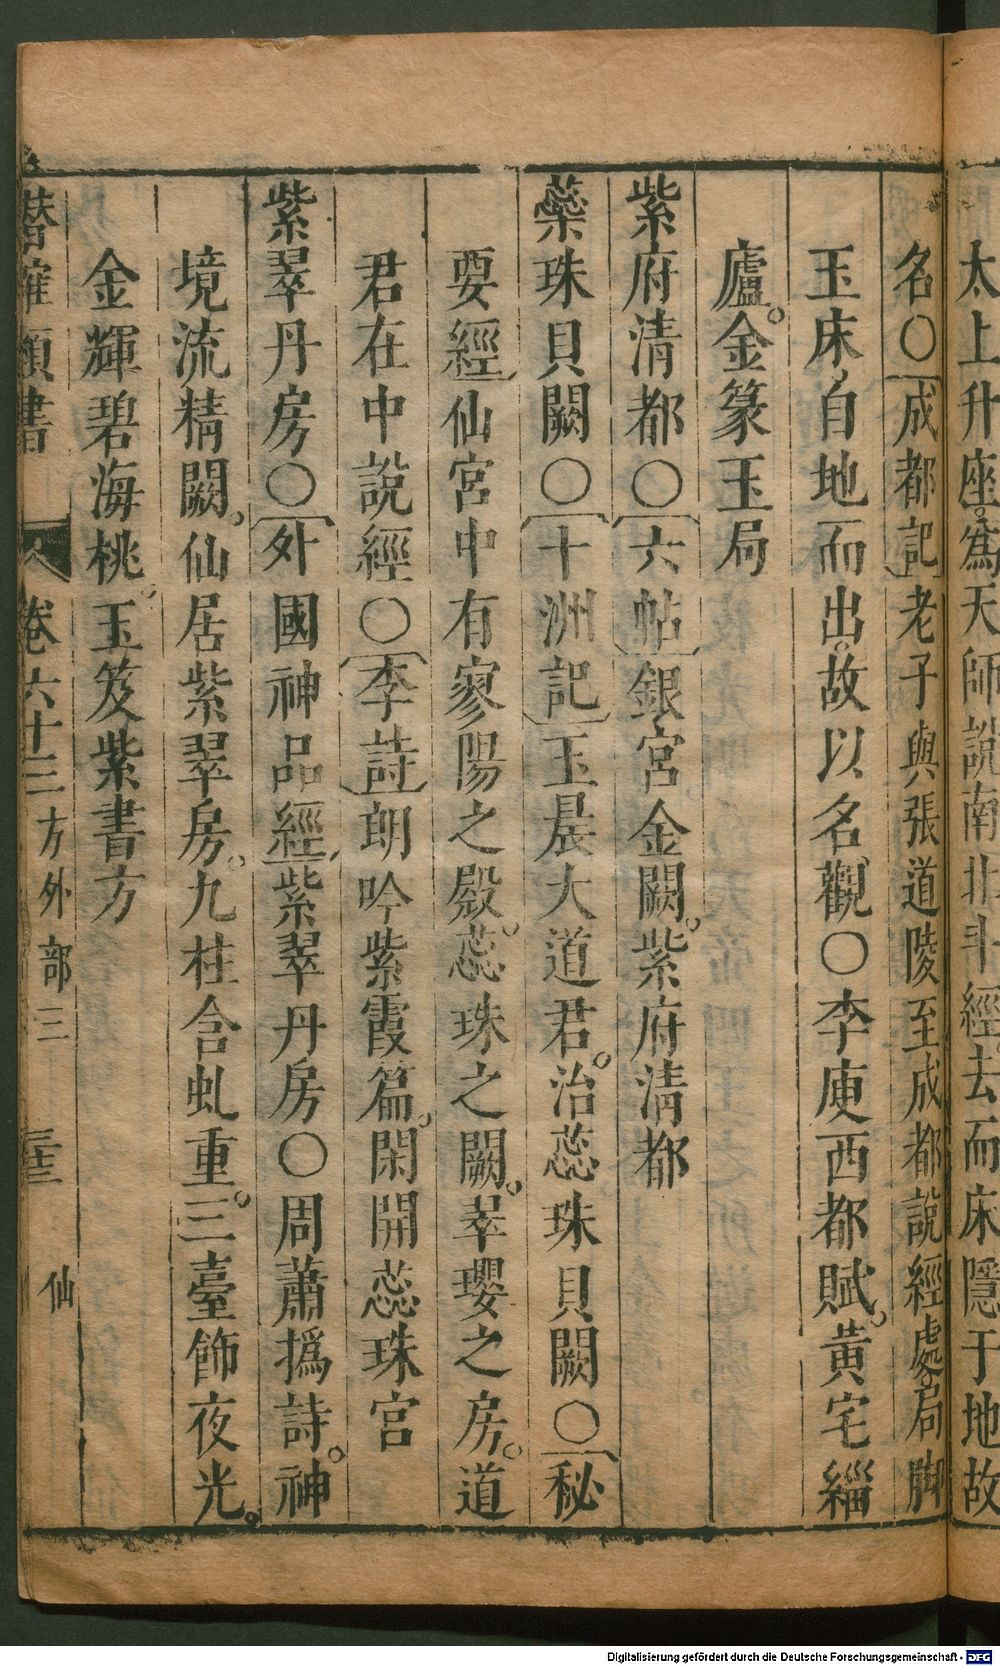 太上升座。為天師說南北斗經。去而床隱于地故
名〇成都記老子與張道陵至成都說經處。局脚
玉床，自地而出。故以名觀〇李庾西都賦。黃宅緇
廬。金篆玉局
紫府清都〇六帖銀宮金闕。紫府清都
蘂珠貝闕〇十洲記玉晨大道君。治蕊珠貝闕〇秘
要經仙宮中有寥陽之殿。蕊珠之闕。翠瓔之房。道
君在中說經〇李詩朗吟紫霞篇。閑開蕊珠宮
紫翠丹房〇外國神品經紫翠丹房〇周蕭撝詩。神
境流精闕。仙居紫翠房。九桂含虬重。三臺飾夜光。
金輝碧海桃。玉笈紫書方
潛確類書 卷六十三 方外部三 三十三 仙
Digitalisierung gefördert durch die Deutsche Forschungsgemeinschaft - DFG